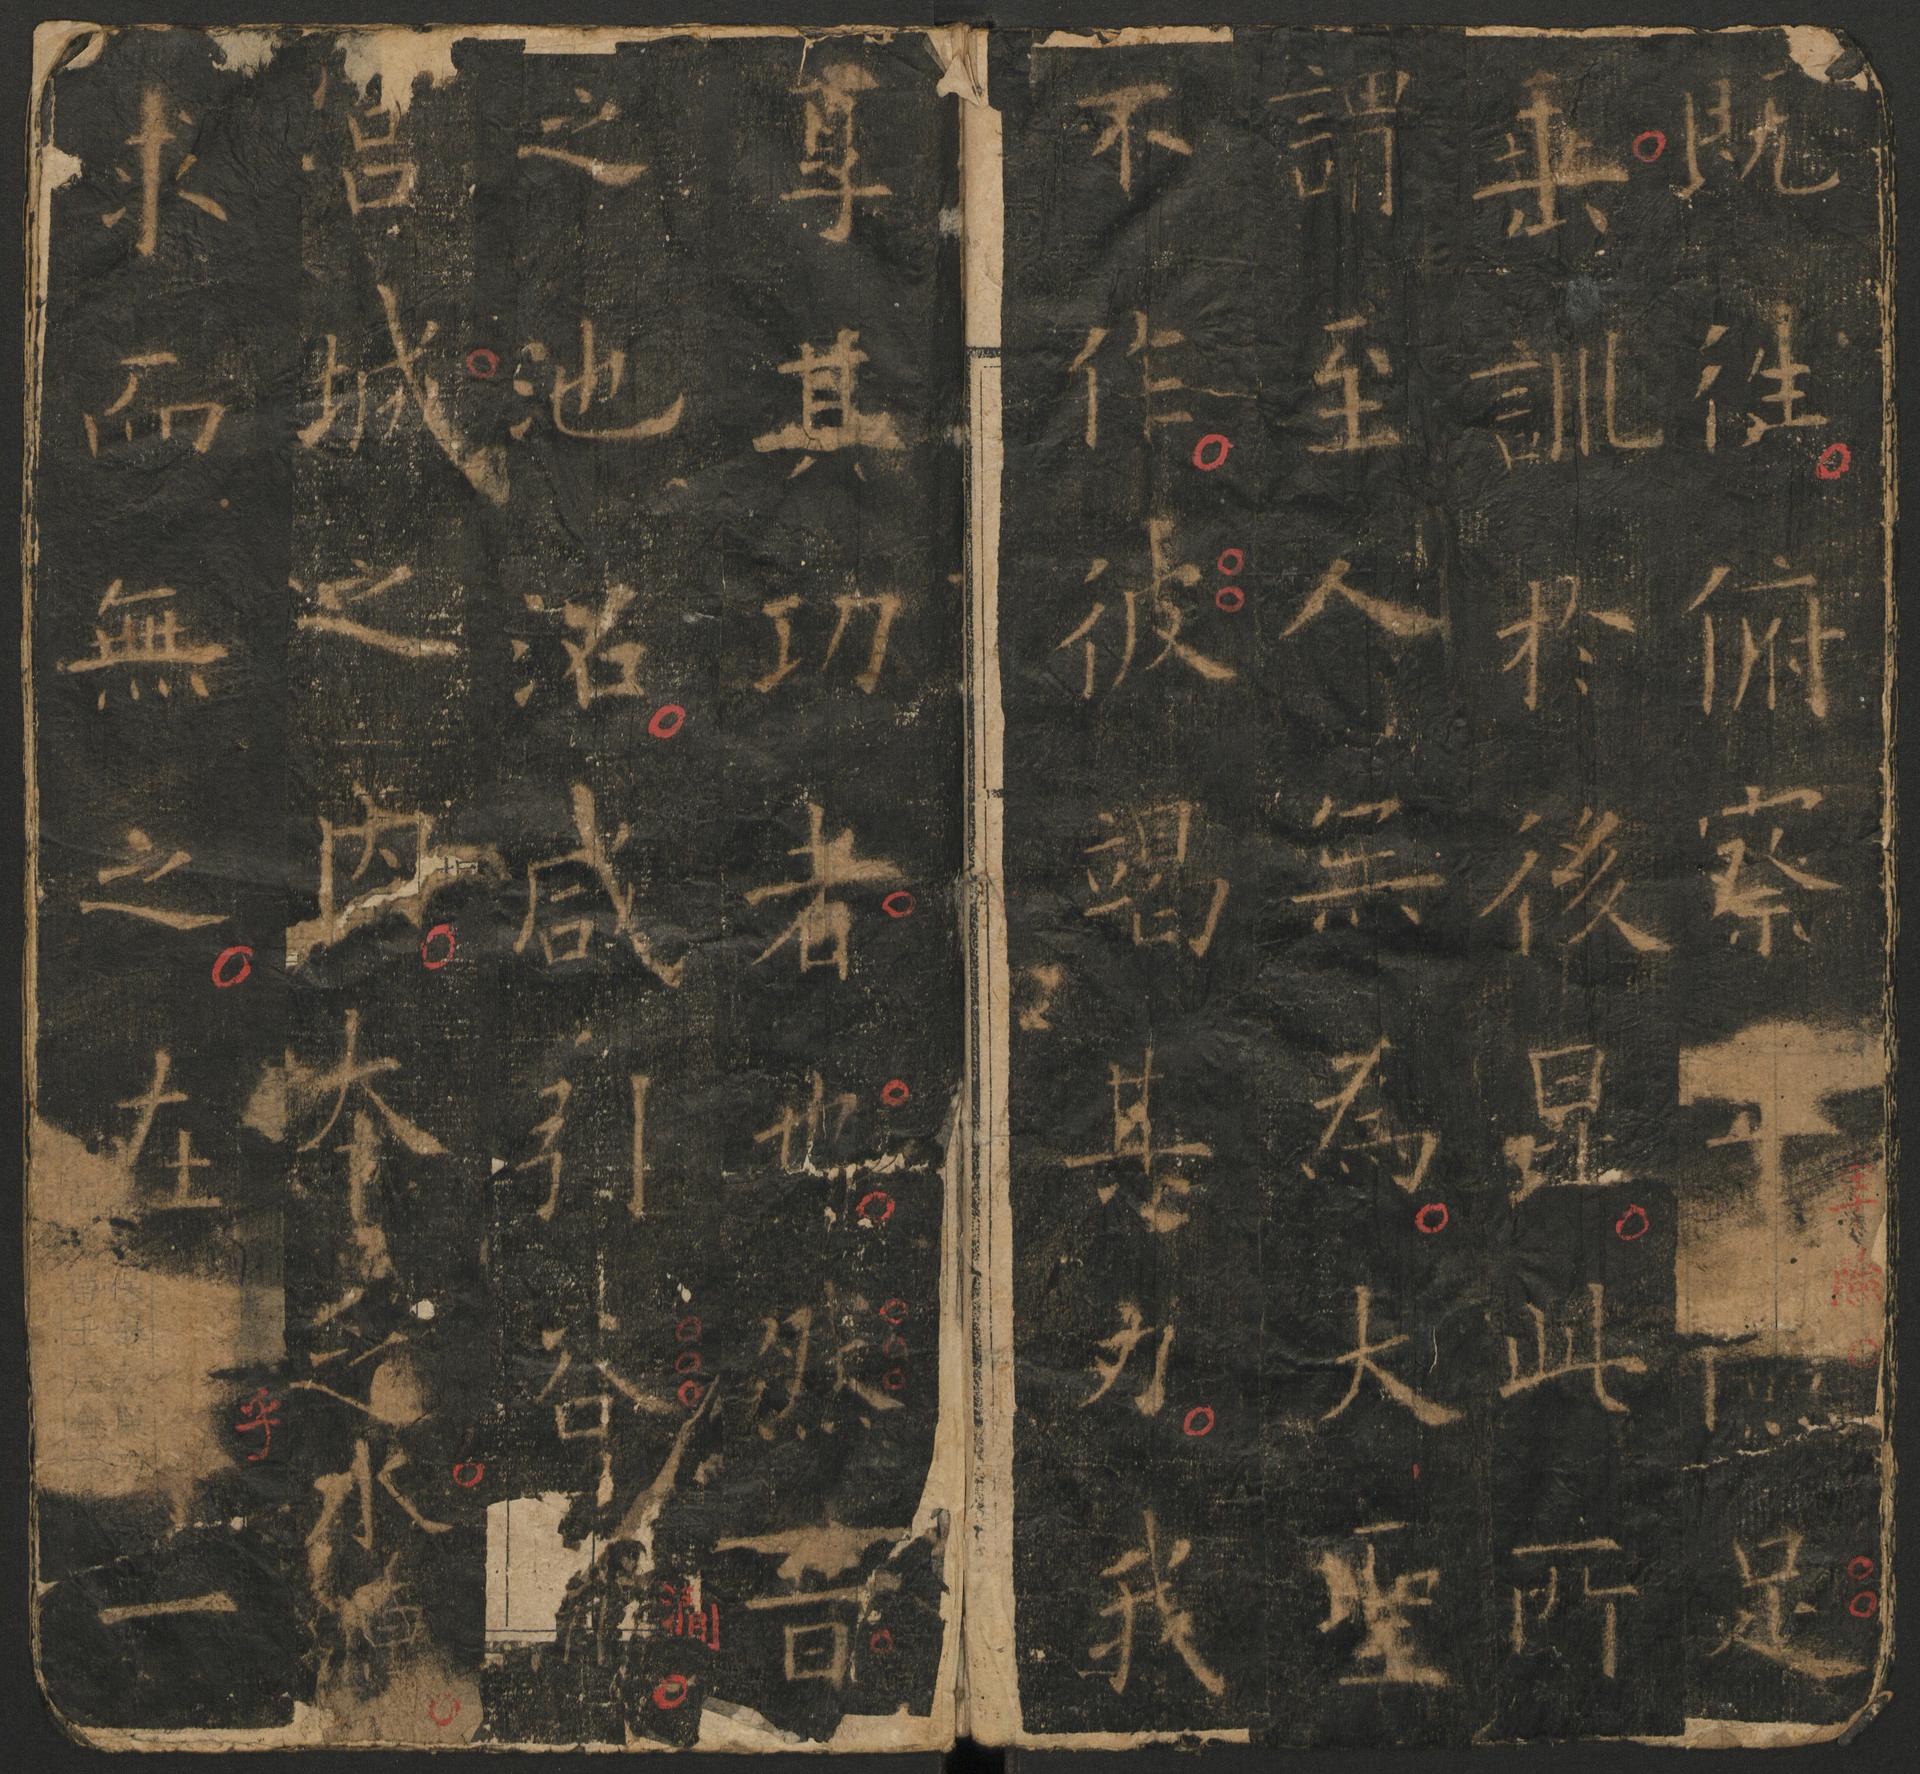 既往俯察卑足
垂訓於後昆此所
謂至人無為大聖
不作彼竭其力我
享其功者也然昔
之池沼咸引谷澗
宮城之內本乏水源
求而無之在乎一